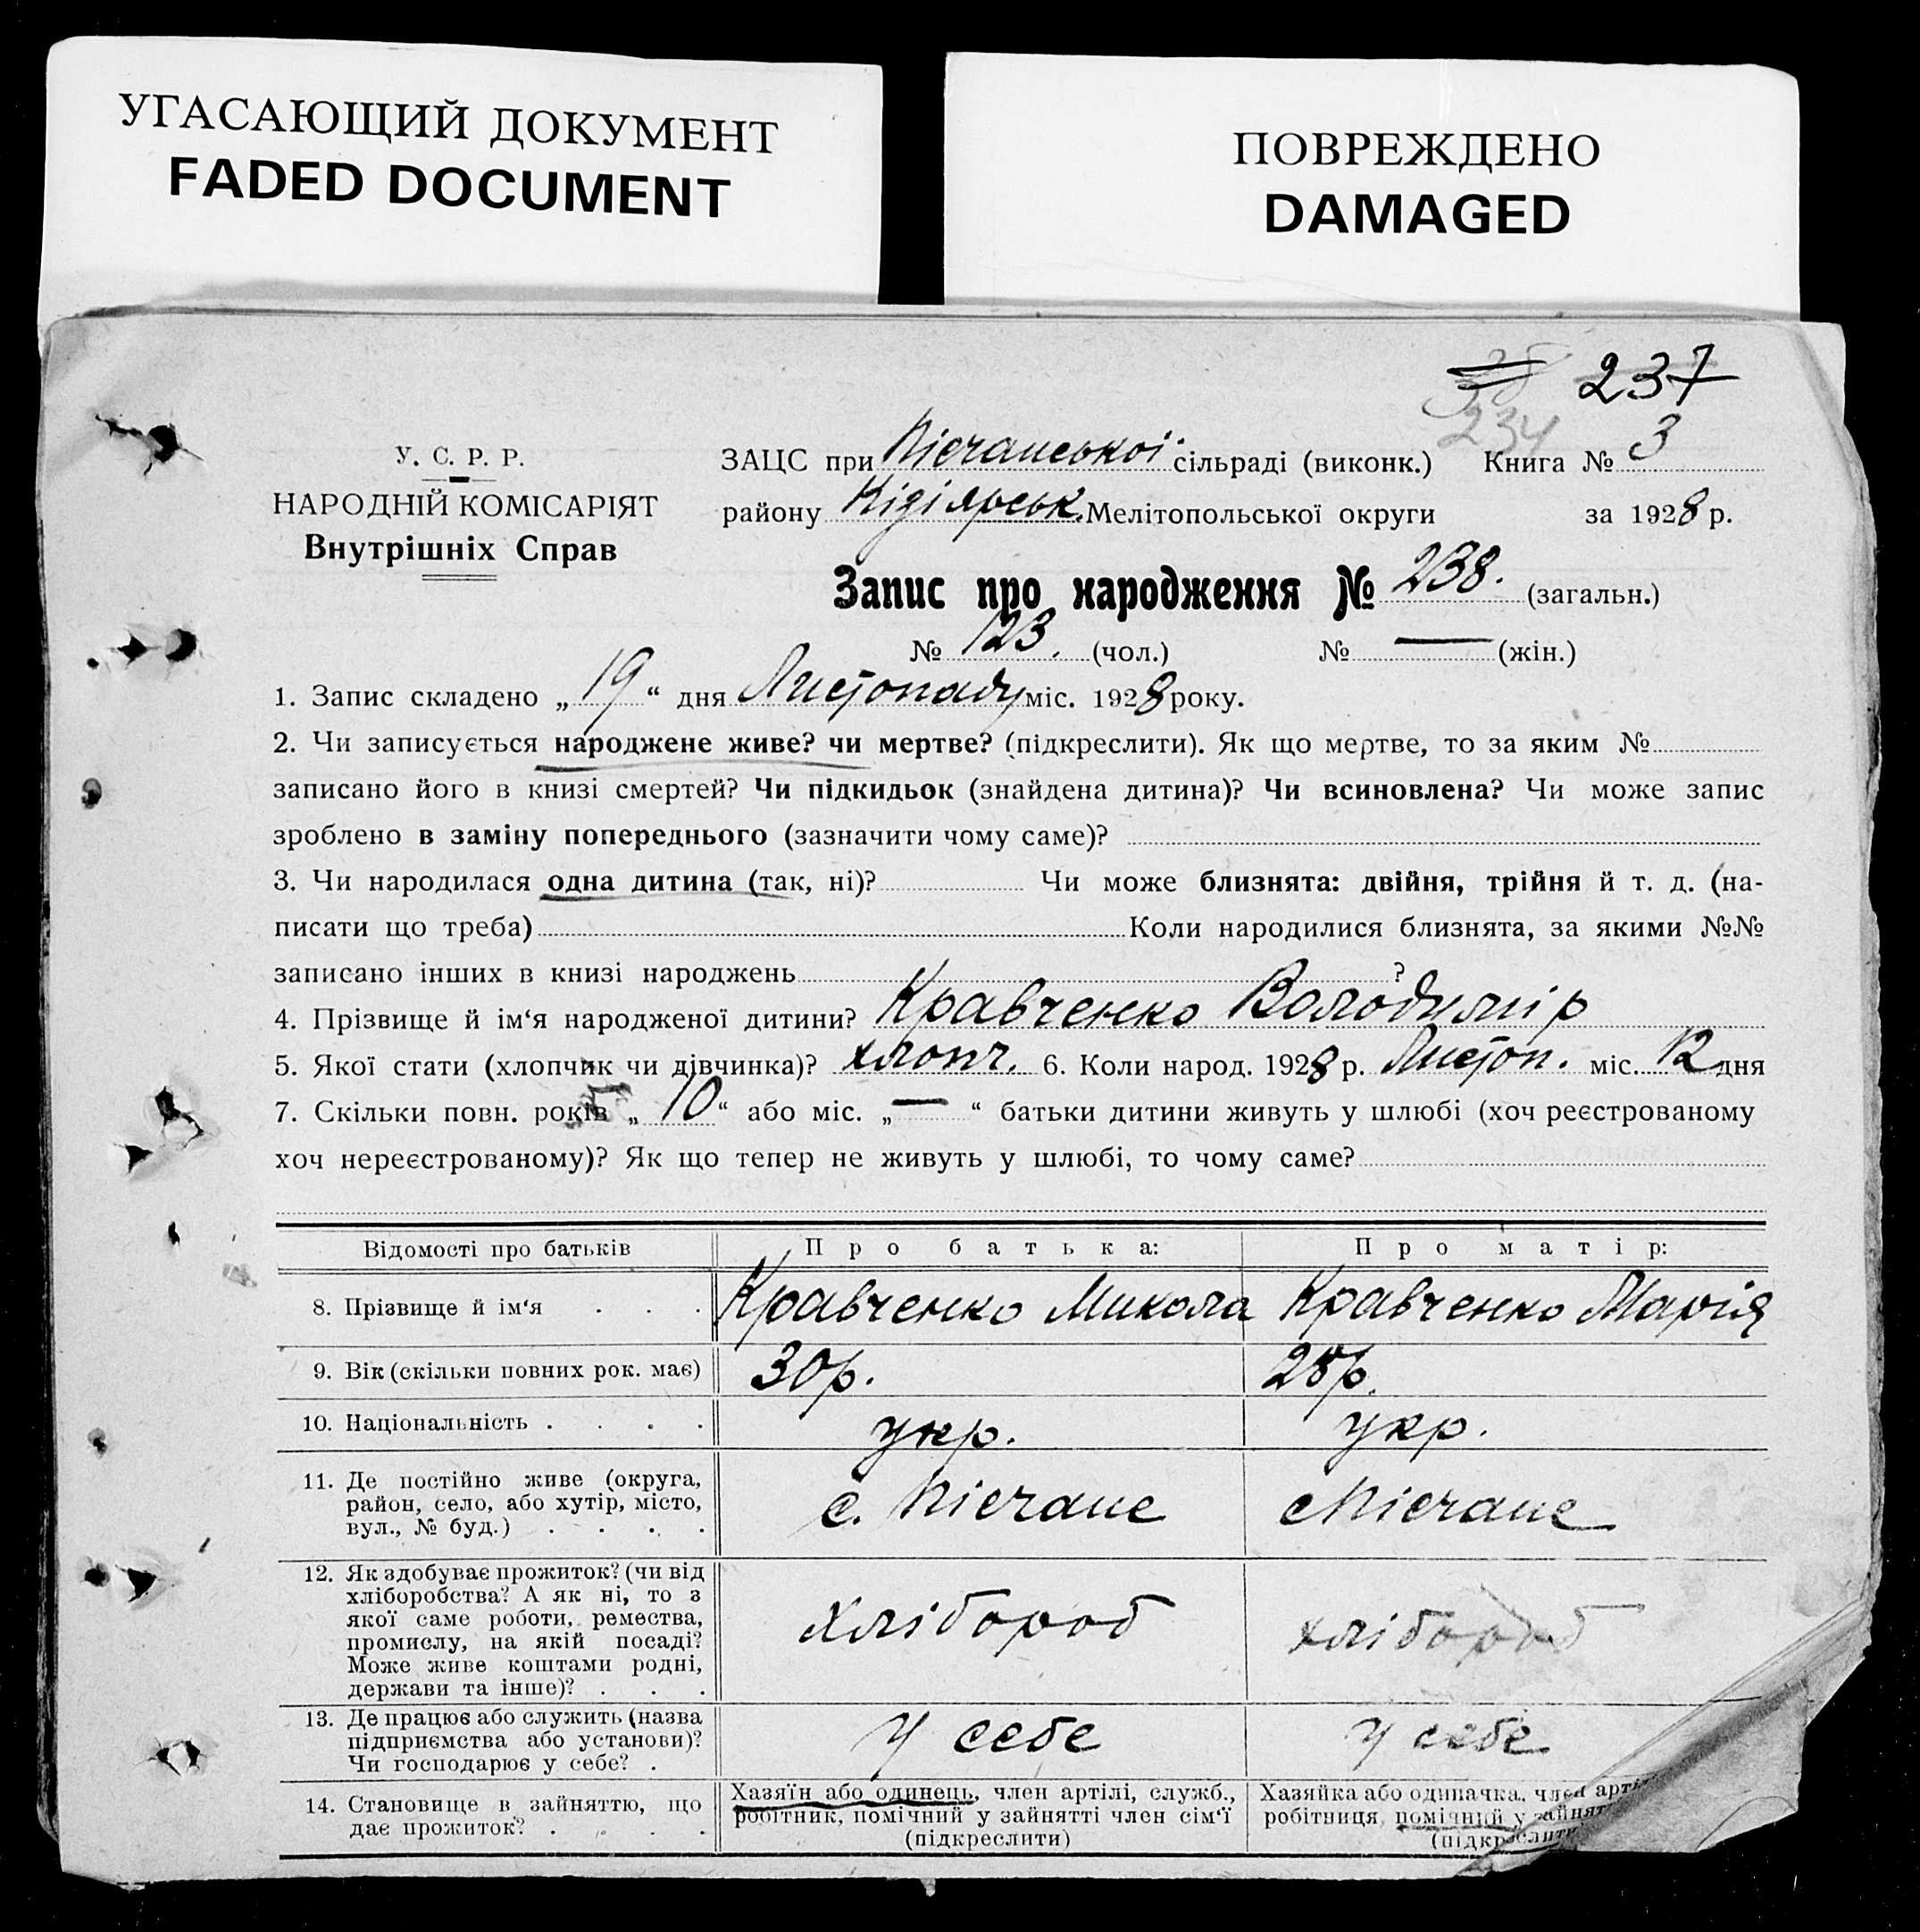 УГАСАЮЩИЙ ДОКУМЕНТ
FADED DOCUMENT
ПОВРЕЖДЕНО
DAMAGED
237
234
У. С. Р. Р.
НАРОДНІЙ КОМІСАРІЯТ
Внутрішніх Справ
ЗАЦС при Пісчанської сільраді (виконк.) Книга № 3
району Кізіярськ. Мелітопольської округи за 1928 р.
Запис про народження № 238. (загальн.)
№ 123. (чол.) № — (жін.)
1. Запис складено „ 19 “ дня Листопаду міс. 1928 року.
2. Чи записується народжене живе? чи мертве? (підкреслити). Як що мертве, то за яким №
записано його в книзі смертей? Чи підкидьок (знайдена дитина)? Чи всиновлена? Чи може запис
зроблено в заміну попереднього (зазначити чому саме)?
3. Чи народилася одна дитина (так, ні)? Чи може близнята: двійня, трійня й т. д. (на-
писати що треба) Коли народилися близнята, за якими №№
записано інших в книзі народжень ?
4. Прізвище й ім‘я народженої дитини? Кравченко Володимір
5. Якої стати (хлопчик чи дівчинка)? хлопч. 6. Коли народ. 1928 р. Листоп. міс. 12 дня
7. Скільки повн. років „ 10 “ або міс. „ — “ батьки дитини живуть у шлюбі (хоч реєстрованому
хоч нереєстрованому)? Як що тепер не живуть у шлюбі, то чому саме?
Відомості про батьків Про батька: Про матір:
8. Прізвище й ім‘я . . . Кравченко Микола Кравченко Марія
9. Вік (скільки повних рок. має) 30 р. 28 р.
10. Національність . . . . укр. укр.
11. Де постійно живе (округа,
район, село, або хутір, місто,
вул., № буд.) . . . . с. Пісчане с Пісчане
12. Як здобуває прожиток? (чи від
хліборобства? А як ні, то з
якої саме роботи, ремества,
промислу, на якій посаді?
Може живе коштами родні,
держави та інше)? . . . Хлібороб хлібороб
13. Де працює або служить (назва
підприємства або установи)?
Чи господарює у себе? . У себе У себе
14. Становище в зайняттю, що
дає прожиток? . . . .
Хазяїн або одинець, член артілі, служб.,
робітник, помічний у зайнятті член сім‘ї
(підкреслити)
Хазяйка або одиначка, член арті
робітниця, помічний у зайнят
(підкреслити)